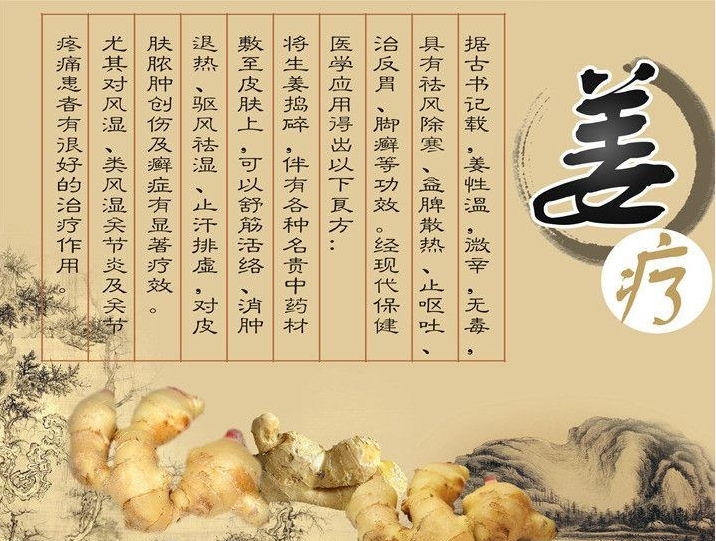 姜
疗
据古书记载,姜性温,微辛,无毒,
具有祛风除寒、益脾散热、止呕吐、
治反胃、脚癣等功效。经现代保健
医学应用得出以下复方:
将生姜捣碎,伴有各种名贵中药材
敷至皮肤上,可以舒筋活络、消肿
退热、驱风祛湿、止汗排虚,对皮
肤脓肿创伤及癣症有显著疗效。
尤其对风湿、类风湿关节炎及关节
疼痛患者有很好的治疗作用。